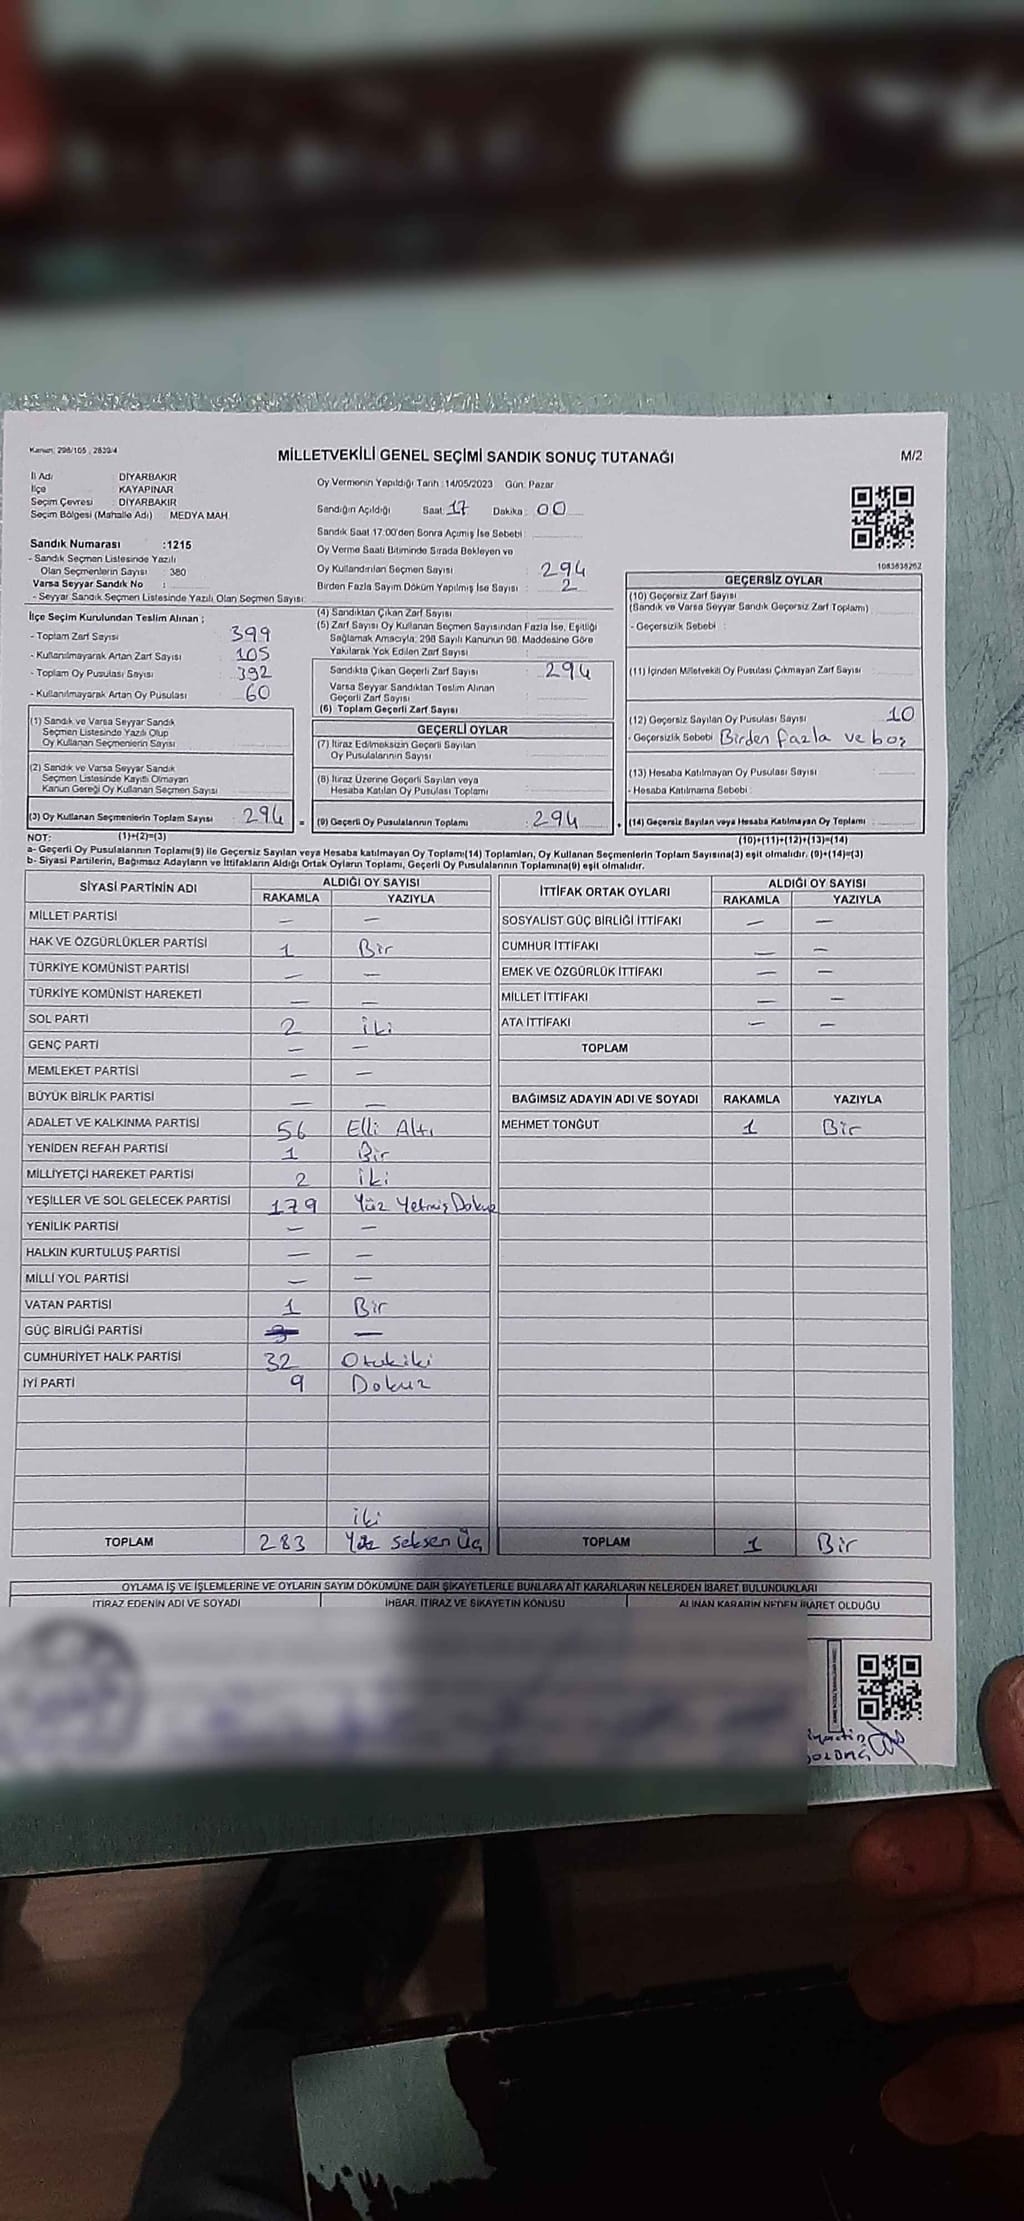 Kanun: 298/105 , 2839/4
MİLLETVEKİLİ GENEL SEÇİMİ SANDIK SONUÇ TUTANAĞI
M/2
İl Adı : DİYARBAKIR
İlçe : KAYAPINAR
Seçim Çevresi : DİYARBAKIR
Seçim Bölgesi (Mahalle Adı) : MEDYA MAH.
Sandık Numarası :1215
- Sandık Seçmen Listesinde Yazılı
Olan Seçmenlerin Sayısı : 380
Varsa Seyyar Sandık No :
- Seyyar Sandık Seçmen Listesinde Yazılı Olan Seçmen Sayısı:
Oy Vermenin Yapıldığı Tarih :14/05/2023 Gün: Pazar
Sandığın Açıldığı Saat: 17 Dakika : 00
Sandık Saat 17:00'den Sonra Açımış İse Sebebi :
Oy Verme Saati Bitiminde Sırada Bekleyen ve
Oy Kullandırılan Seçmen Sayısı : 294
Birden Fazla Sayım Döküm Yapılmış İse Sayısı : 2
İlçe Seçim Kurulundan Teslim Alınan ;
- Toplam Zarf Sayısı : 399
- Kullanılmayarak Artan Zarf Sayısı : 105
- Toplam Oy Pusulası Sayısı : 392
- Kullanılmayarak Artan Oy Pusulası : 60
(1) Sandık ve Varsa Seyyar Sandık
Seçmen Listesinde Yazılı Olup
Oy Kullanan Seçmenlerin Sayısı :
(2) Sandık ve Varsa Seyyar Sandık
Seçmen Listesinde Kayıtlı Olmayan
Kanun Gereği Oy Kullanan Seçmen Sayısı :
(3) Oy Kullanan Seçmenlerin Toplam Sayısı : 294
(4) Sandıktan Çıkan Zarf Sayısı
(5) Zarf Sayısı Oy Kullanan Seçmen Sayısından Fazla İse, Eşitliği
Sağlamak Amacıyla; 298 Sayılı Kanunun 98. Maddesine Göre
Yakılarak Yok Edilen Zarf Sayısı
Sandıkta Çıkan Geçerli Zarf Sayısı : 294
Varsa Seyyar Sandıktan Teslim Alınan
Geçerli Zarf Sayısı
(6) Toplam Geçerli Zarf Sayısı
GEÇERLİ OYLAR
(7) İtiraz Edilmeksizin Geçerli Sayılan
Oy Pusulalarının Sayısı
(8) İtiraz Üzerine Geçerli Sayılan veya
Hesaba Katılan Oy Pusulası Toplamı
= (9) Geçerli Oy Pusulalarının Toplamı : 294
1083838262
GEÇERSİZ OYLAR
(10) Geçersiz Zarf Sayısı
(Sandık ve Varsa Seyyar Sandık Geçersiz Zarf Toplamı)
- Geçersizlik Sebebi :
(11) İçinden Milletvekili Oy Pusulası Çıkmayan Zarf Sayısı
(12) Geçersiz Sayılan Oy Pusulası Sayısı 10
- Geçersizlik Sebebi : Birden fazla ve boş
(13) Hesaba Katılmayan Oy Pusulası Sayısı
- Hesaba Katılmama Sebebi :
+ (14) Geçersiz Sayılan veya Hesaba Katılmayan Oy Toplamı :
NOT: (1)+(2)=(3)
(10)+(11)+(12)+(13)=(14)
a- Geçerli Oy Pusulalarının Toplamı(9) ile Geçersiz Sayılan veya Hesaba katılmayan Oy Toplamı(14) Toplamları, Oy Kullanan Seçmenlerin Toplam Sayısına(3) eşit olmalıdır. (9)+(14)=(3)
b- Siyasi Partilerin, Bağımsız Adayların ve İttifakların Aldığı Ortak Oyların Toplamı, Geçerli Oy Pusulalarının Toplamına(9) eşit olmalıdır.
SİYASİ PARTİNİN ADI ALDIĞI OY SAYISI
RAKAMLA YAZIYLA
MİLLET PARTİSİ — —
HAK VE ÖZGÜRLÜKLER PARTİSİ 1 Bir
TÜRKİYE KOMÜNİST PARTİSİ — —
TÜRKİYE KOMÜNİST HAREKETİ — —
SOL PARTİ 2 İki
GENÇ PARTİ — —
MEMLEKET PARTİSİ — —
BÜYÜK BİRLİK PARTİSİ — —
ADALET VE KALKINMA PARTİSİ 56 Elli Altı
YENİDEN REFAH PARTİSİ 1 Bir
MİLLİYETÇİ HAREKET PARTİSİ 2 İki
YEŞİLLER VE SOL GELECEK PARTİSİ 179 Yüz Yetmiş Dokuz
YENİLİK PARTİSİ — —
HALKIN KURTULUŞ PARTİSİ — —
MİLLİ YOL PARTİSİ — —
VATAN PARTİSİ 1 Bir
GÜÇ BİRLİĞİ PARTİSİ —
CUMHURİYET HALK PARTİSİ 32 Otukiki
İYİ PARTİ 9 Dokuz
İki
TOPLAM 283 Yüz Seksen Üç
İTTİFAK ORTAK OYLARI ALDIĞI OY SAYISI
RAKAMLA YAZIYLA
SOSYALİST GÜÇ BİRLİĞİ İTTİFAKI — —
CUMHUR İTTİFAKI — —
EMEK VE ÖZGÜRLÜK İTTİFAKI — —
MİLLET İTTİFAKI — —
ATA İTTİFAKI — —
TOPLAM
BAĞIMSIZ ADAYIN ADI VE SOYADI RAKAMLA YAZIYLA
MEHMET TONĞUT 1 Bir
TOPLAM 1 Bir
OYLAMA İŞ VE İŞLEMLERİNE VE OYLARIN SAYIM DÖKÜMÜNE DAİR ŞİKAYETLERLE BUNLARA AİT KARARLARIN NELERDEN İBARET BULUNDUKLARI
İTİRAZ EDENİN ADI VE SOYADI İHBAR, İTİRAZ VE ŞİKAYETİN KONUSU ALINAN KARARIN NEDEN İBARET OLDUĞU